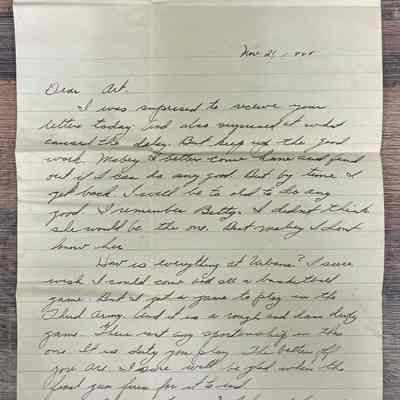 Nov 21,
Dear Art.
I was suprised to receive your
letter today. and also suprised at what
caused the delay. But keep up the good
work. Mabey I better come home and find
out if I can do any good. But by time I
get back. I will be to old to do any
good. I remember Betty. I didnt think
she would be the one. But mabey I dont
know her
How is everything at Urbana? I sure
wish I could come and see a basketball
game. But I got a game to play in the
Third Army. And it is a rough and
game. There isnt any sportsmanship in this
one. It is dirty you play. The better off
you are. I sure will be glad when the
final gun fires for it to end.